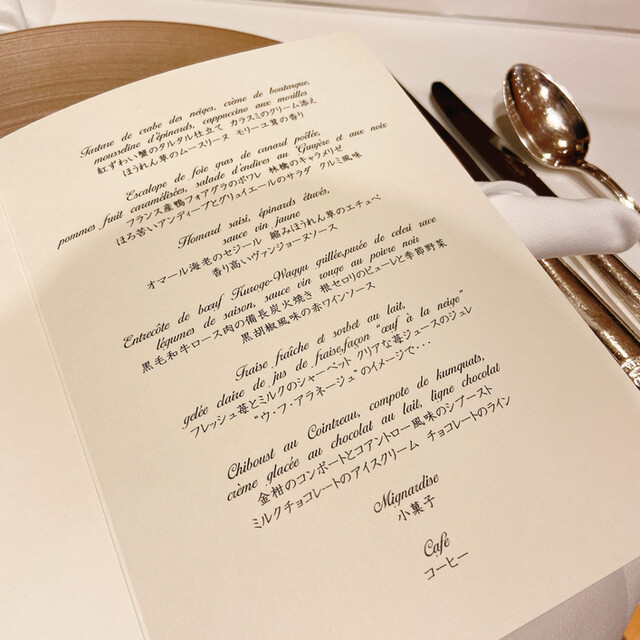 Tartare de crabe des neiges, crème de boutargue,
mousseline d'épinards, cappuccino aux morilles
紅ずわい蟹のタルタル仕立て カラスミのクリーム添え
ほうれん草のムースリーヌ モリーユ茸の香り
Escalope de foie gras de canard poêlée,
pommes fruit caramélisées, salade d'endives au Gruyère et aux noix
フランス産鴨フォアグラのポワレ 林檎のキャラメリゼ
ほろ苦いアンディーブとグリュイエールのサラダ クルミ風味
Homard saisi, épinards étuvés,
sauce vin jaune
オマール海老のセジール 縮みほうれん草のエチュベ
香り高いヴァンジョーヌソース
Entrecôte de bœuf Kuroge-Wagyu grillée,purée de celeri rave
légumes de saison, sauce vin rouge au poivre noir
黒毛和牛ロース肉の備長炭火焼き 根セロリのピューレと季節野菜
黒胡椒風味の赤ワインソース
Fraise fraîche et sorbet au lait,
gelée claire de jus de fraise,façon "œuf à la neige"
フレッシュ苺とミルクのシャーベット クリアな苺ジュースのジュレ
"ウ・フ・アラネージュ"のイメージで・・・
Chiboust au Cointreau, compote de kumquats,
crème glacée au chocolat au lait, ligne chocolat
金柑のコンポートとコアントロー風味のシブースト
ミルクチョコレートのアイスクリーム チョコレートのライン
Mignardise
小菓子
Café
コーヒー